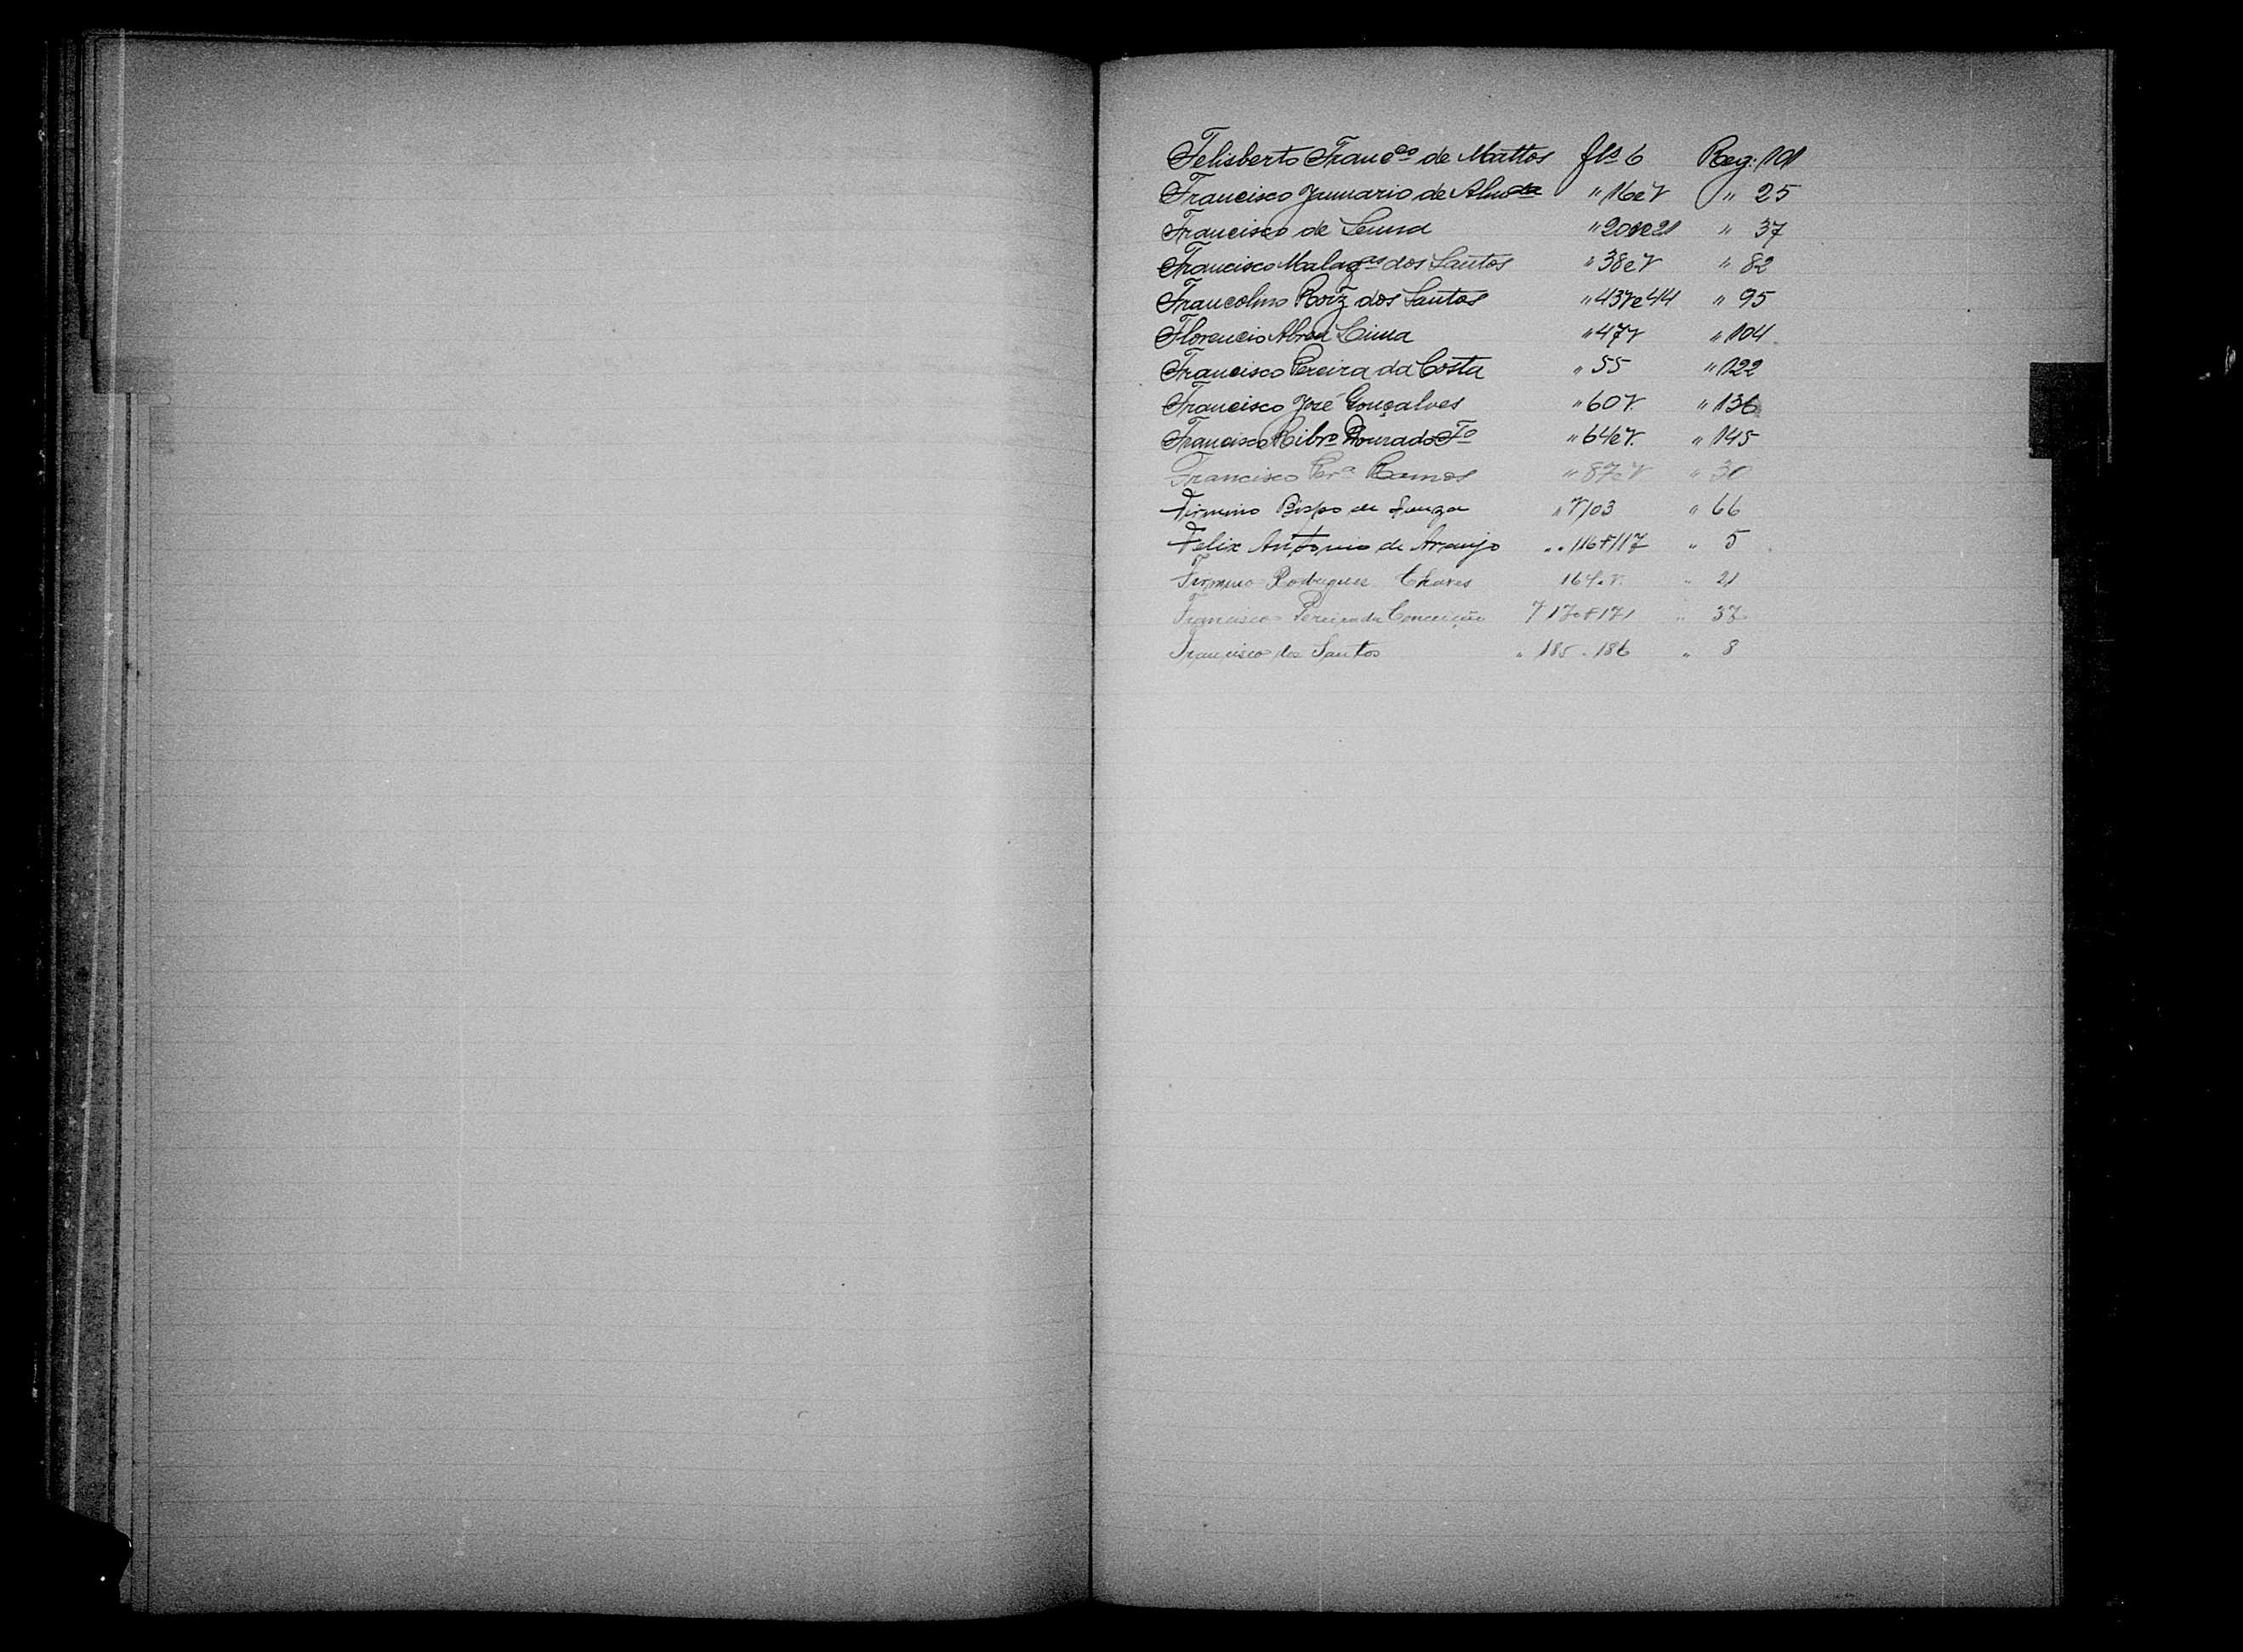 Felisberto Franc.co de Mattos fls 6 Reg: 101
Francisco Januario de Almda " 16 e v " 25
Francisco de Senna " 20v e 21 " 37
Francisco Malaqas dos Santos " 38 e v " 82
Francolino Roiz dos Santos " 43v e 44 " 95
Florencio Abreu Lima " 47v " 104
Francisco Pereira da Costa " 55 " 122
Francisco José Gonçalves " 60v. " 136
Francisco Ribro Dourado Fo " 64 e v. " 145
Francisco Pra Ramos " 87 e v " 30
Firmino Bispo de Souza " v 103 " 66
Felix Antonio de Araujo " 116 + 117 " 5
Firmino Rodrigues Chaves 164. v. " 21
Francisco Pereira da Conceição 170 + 171 " 37
Francisco dos Santos " 185 . 186 " 8